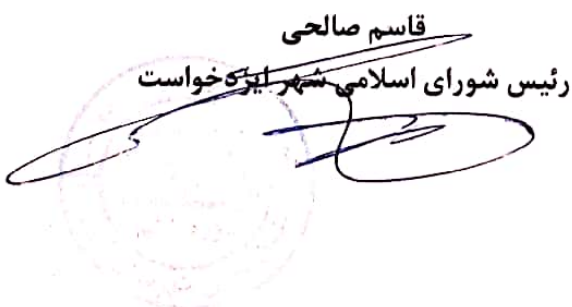 قاسم صالحی
رئیس شورای اسلامی شهر ایزدخواست